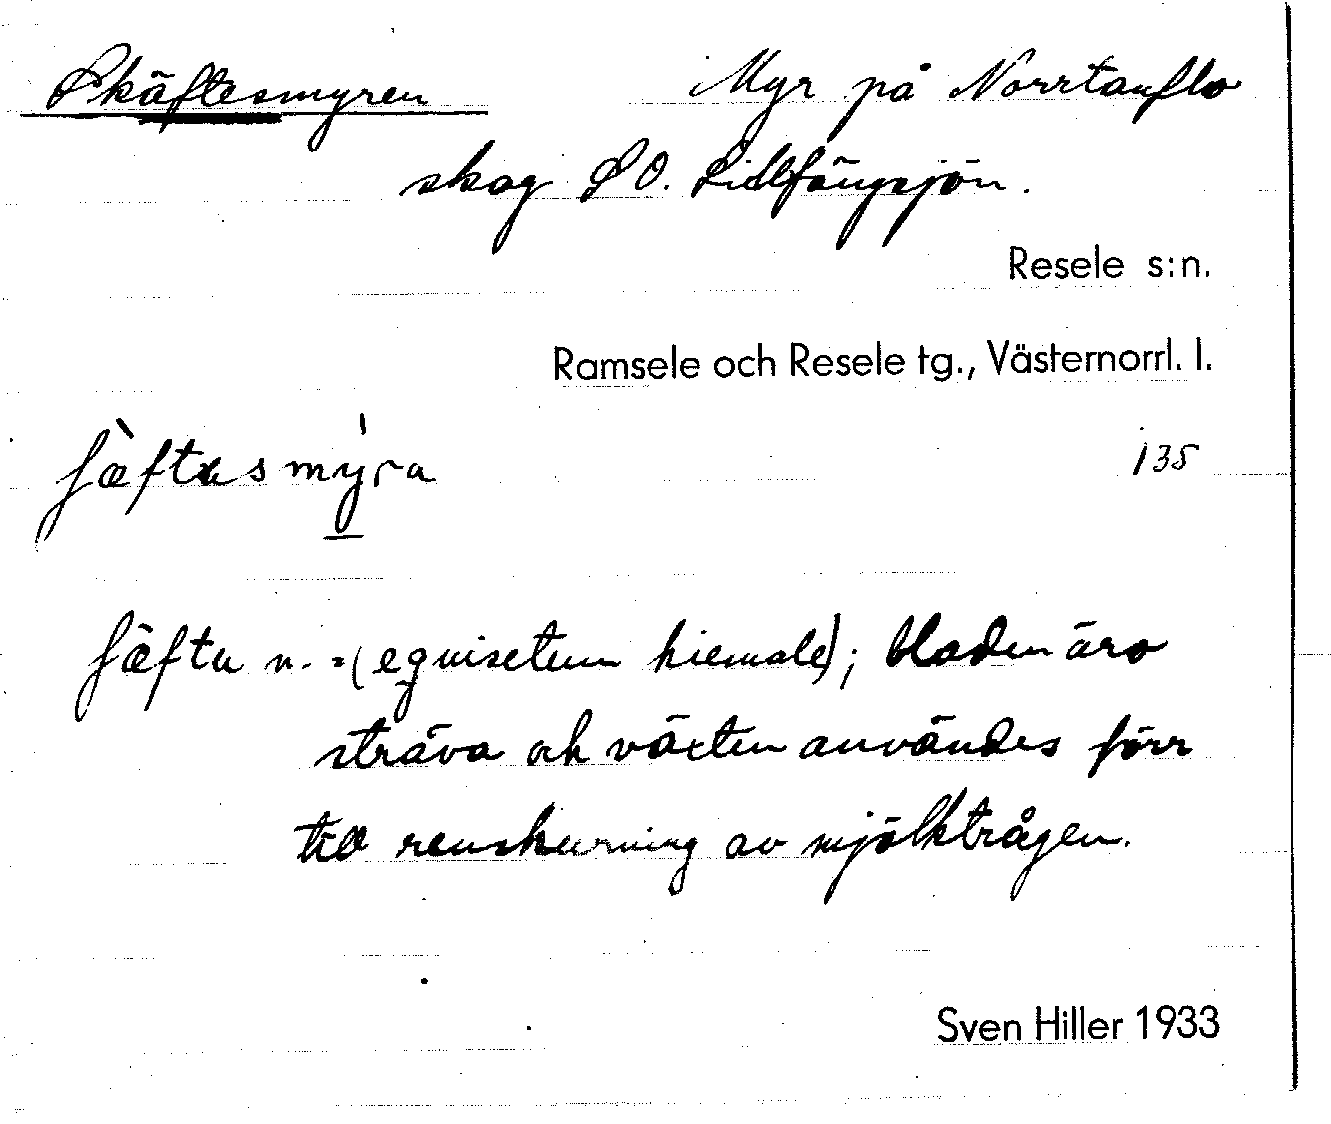 Skäftesmyren Myr på Norrtanflo
skog SO. Lillfängsjön.
Resele s:n.
Ramsele och Resele tg., Västernorrl. l.
ʃæ̀ftɑsmýra
135
ʃæ̀fta n. = (equisetum hiemale); bladen äro
sträva och växten användes förr
till renskurning av mjölktrågen.
Sven Hiller 1933